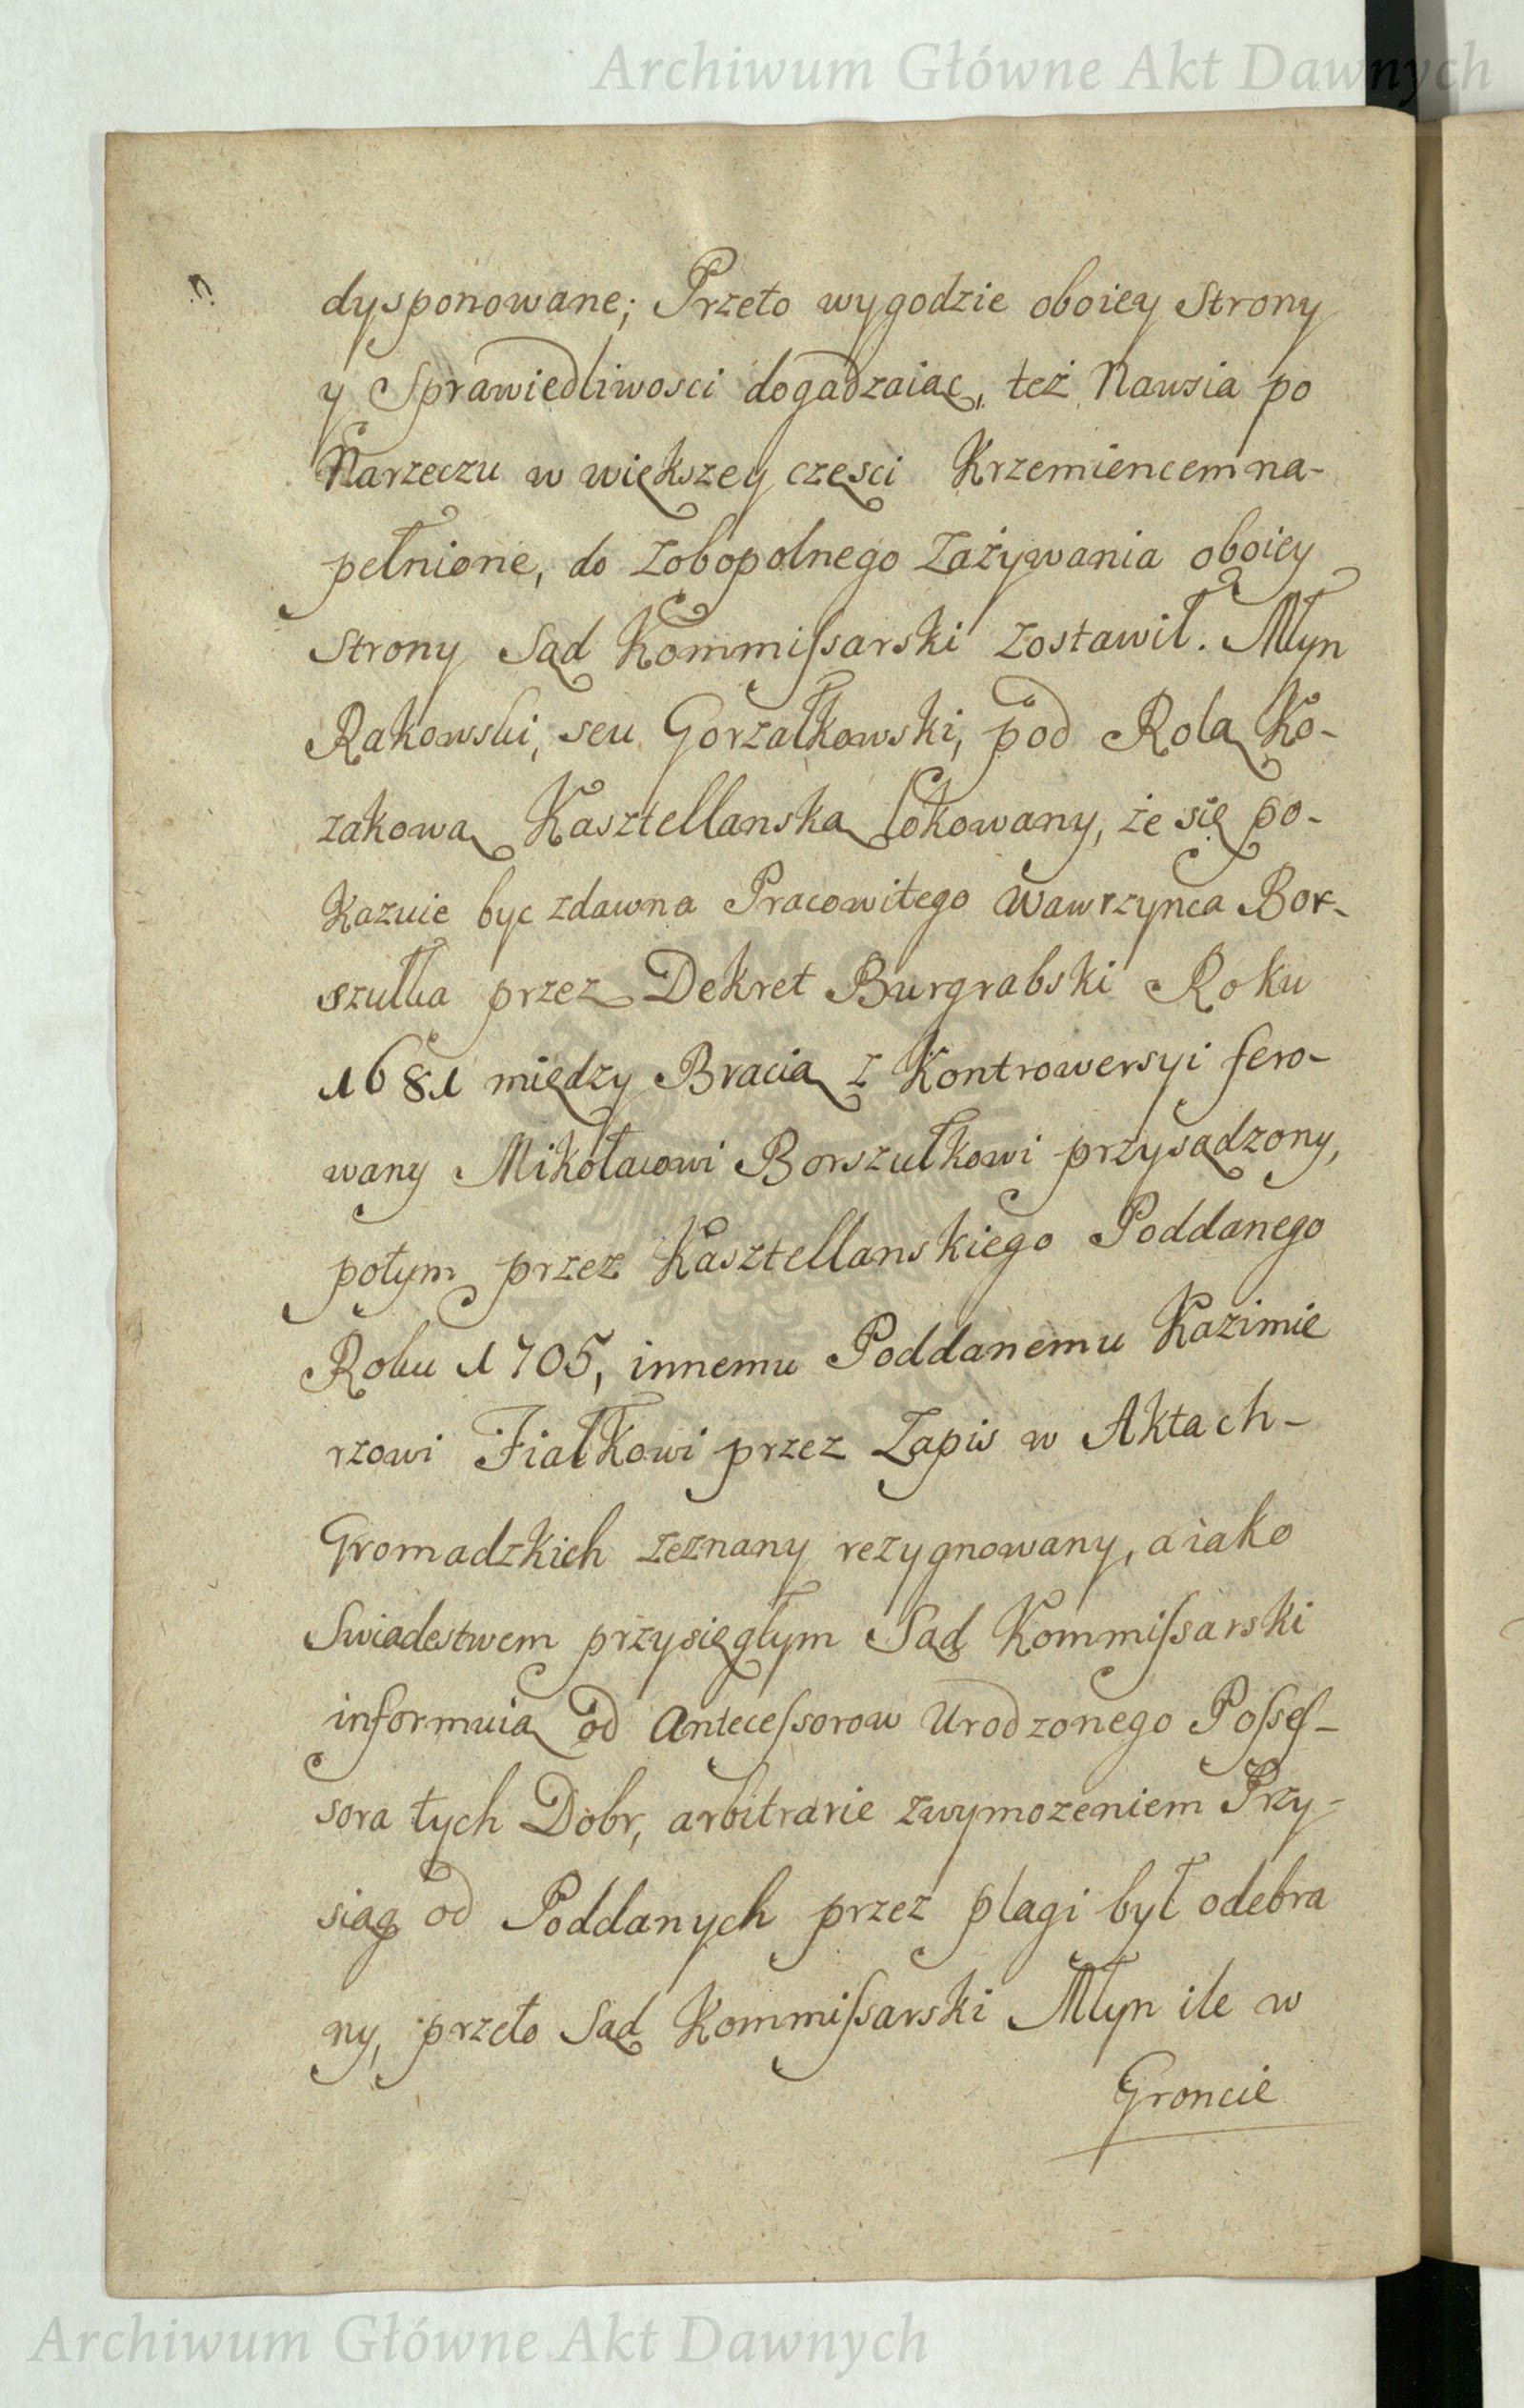 Archiwum Główne Akt Dawnych
dysponowane; Przeto wygodzie oboiey Strony
y Sprawiedliwosci dogadzaiąc, też Nawsia po
Narzeczu w większey częsci Krzemiencem na-
pełnione, do zobopolnego Zażywania oboiey
Strony Sąd Kommissarski zostawił. Młyn
Rakowski, seu Gorzałkowski, pod Rolą Ko-
zakową Kasztellanską lokowany, że się po-
kazuie byc zdawna Pracowitego Wawrzynca Bor-
szułka przez Dekret Burgrabski Roku
1681 między Bracią z Kontrowersyi fero-
wany Mikołaiowi Borszułkowi przysądzony,
potym przez Kasztellanskiego Poddanego
Roku 1705, innemu Poddanemu Kazimie
rzowi Fiałkowi przez Zapis w Aktach-
Gromadzkich zeznany rezygnowany, a iako
Swiadestwem przysięgłym Sąd Kommissarski
informuią od Antecessorow Urodzonego Posses-
sora tych Dobr, arbitrarie zwymozeniem Przy-
siąg od Poddanych przez plagi był odebra
ny, przeto Sąd Kommissarski Młyn ile w
Groncie
Archiwum Główne Akt Dawnych